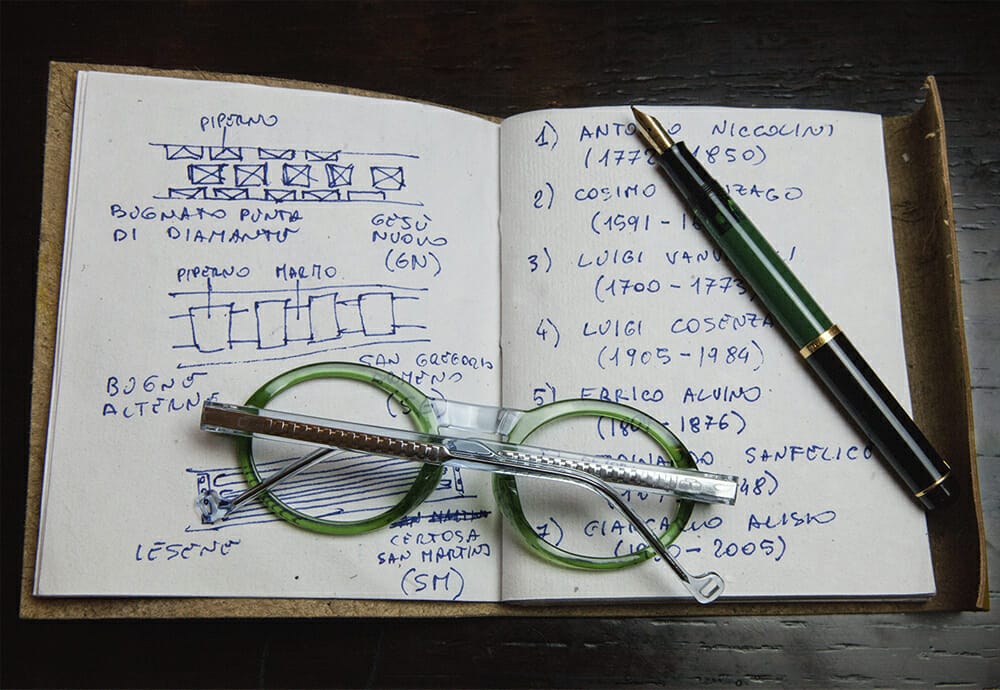 PIPERNO
BUGNATO PUNTA
DI DIAMANTE
GESÙ
NUOVO
(GN)
PIPERNO MARMO
BUGNE
ALTERNE
SAN GREGORIO
LESENE
CERTOSA
SAN MARTINO
(SM)
1) ANTONIO NICCOLINI
(1772 - 1850)
2) COSIMO
(1591 -
3) LUIGI
(1700 - 1773)
4) LUIGI COSENZA
(1905 - 1984)
5) ERRICO ALVINO
- 1876)
SANFELICO
7) GIANCARLO ALISIO
- 2005)